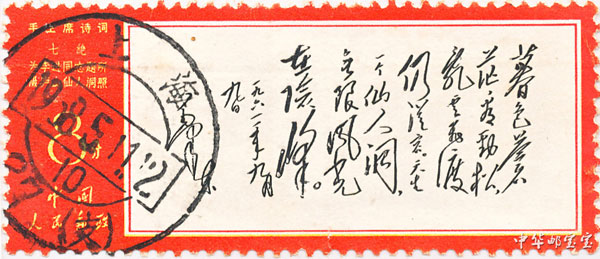 毛主席诗词
七绝
为李进同志题所
摄庐山仙人洞照
8分
中国
人民邮政
暮色苍
茫看劲松,
乱云飞渡
仍从容。天生
一个仙人洞,
无限风光
在险峰。
一九六一年九月
九日
毛泽东
上
(支)
中华邮宝宝